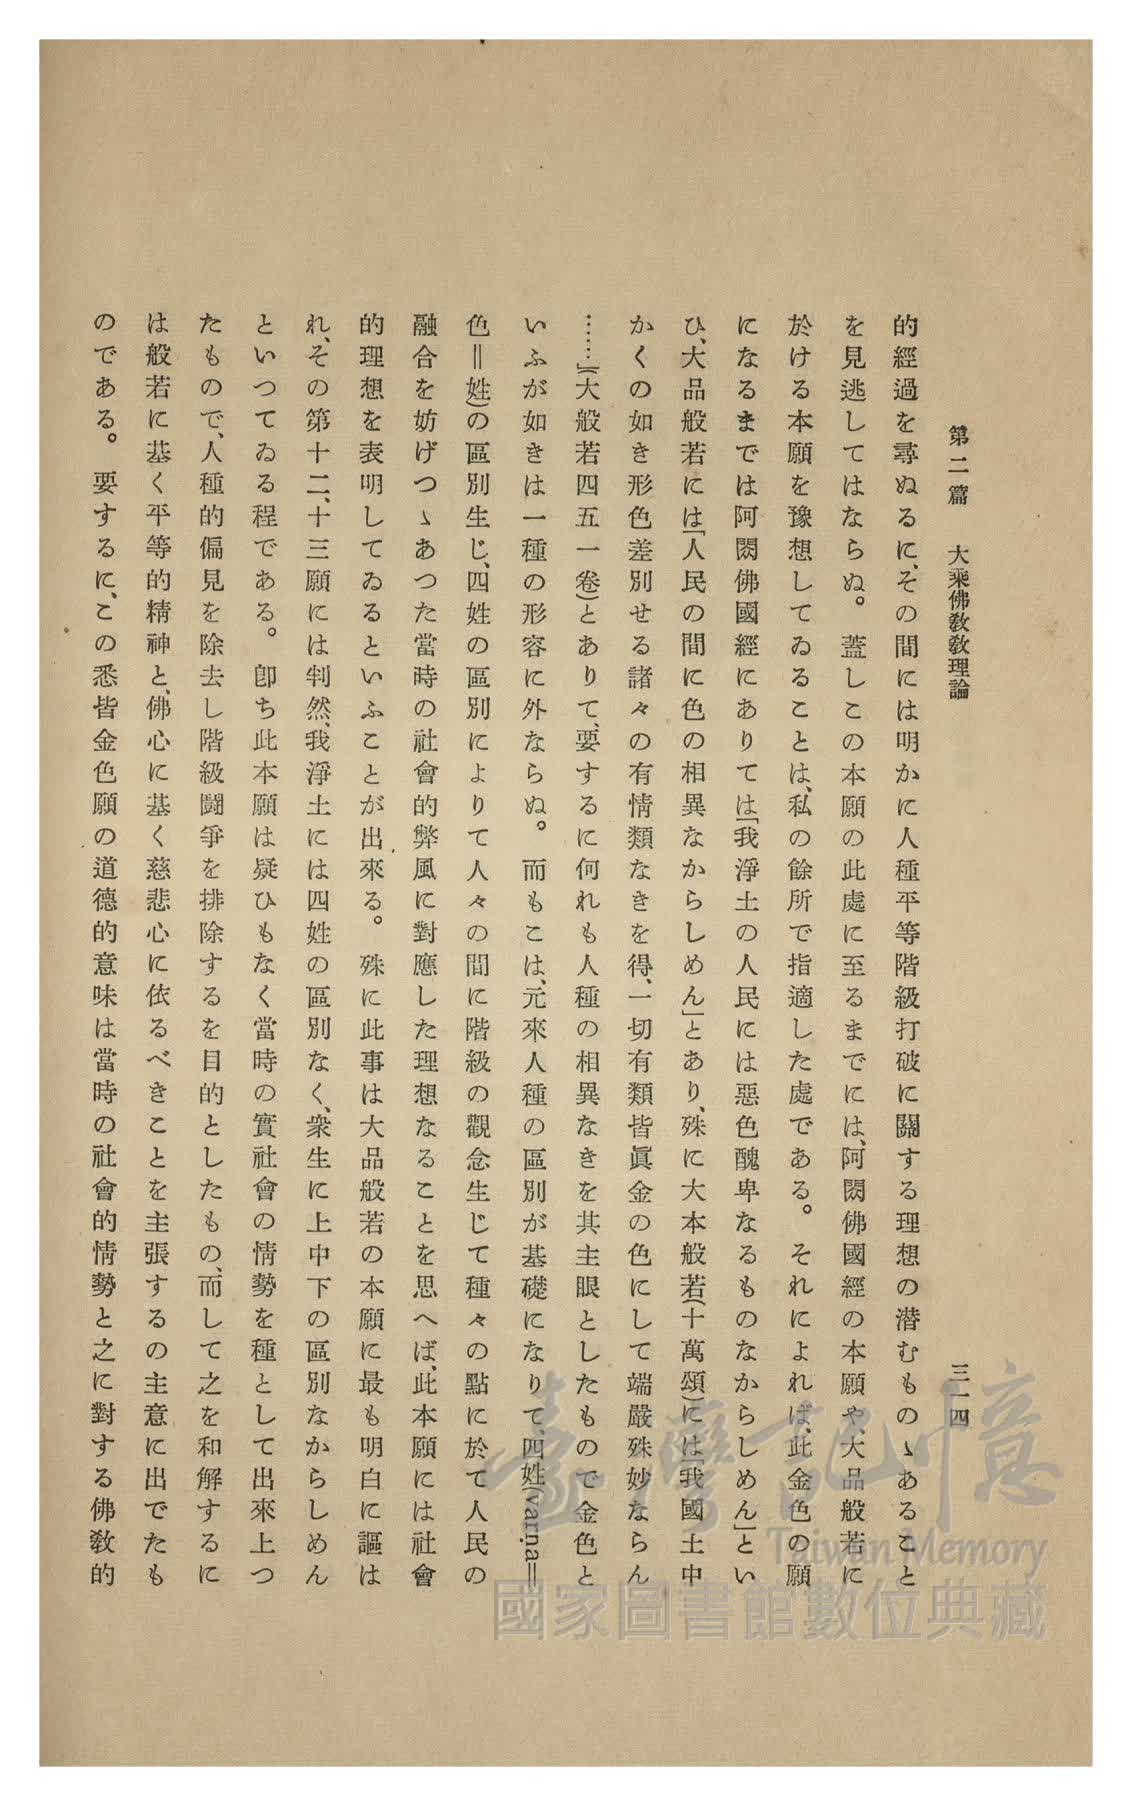 第二篇　大乘佛敎敎理論　三一四
的經過を尋ぬるに、その間には明かに人種平等階級打破に關する理想の潛むものゝあること
を見逃してはならぬ。蓋しこの本願の此處に至るまでには、阿閦佛國經の本願や、大品般若に
於ける本願を豫想してゐることは、私の餘所で指適した處である。それによれば、此金色の願
になるまでは阿閦佛國經にありては「我淨土の人民には惡色醜卑なるものなからしめん」とい
ひ、大品般若には「人民の間に色の相異なからしめん」とあり、殊に大本般若(十萬頌)には「我國土中
かくの如き形色差別せる諸々の有情類なきを得、一切有類皆眞金の色にして端嚴殊妙ならん
……」(大般若四五一卷)とありて、要するに何れも人種の相異なきを其主眼としたもので金色と
いふが如きは一種の形容に外ならぬ。而もこは、元來人種の區別が基礎になりて、四姓(varṇa=
色=姓)の區別生じ、四姓の區別によりて人々の間に階級の觀念生じて種々の點に於て人民の
融合を妨げつゝあつた當時の社會的弊風に對應した理想なることを思へば、此本願には社會
的理想を表明してゐるといふことが出來る。殊に此事は大品般若の本願に最も明白に謳は
れ、その第十二、十三願には判然、我淨土には四姓の區別なく、衆生に上中下の區別なからしめん
といつてゐる程である。卽ち此本願は疑ひもなく當時の實社會の情勢を種として出來上つ
たもので、人種的偏見を除去し階級鬪爭を排除するを目的としたもの、而して之を和解するに
は般若に基く平等的精神と、佛心に基く慈悲心に依るべきことを主張するの主意に出でたも
のである。要するに、この悉皆金色願の道德的意味は當時の社會的情勢と之に對する佛敎的
臺灣記憶
Taiwan Memory
國家圖書館數位典藏